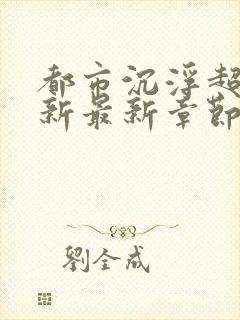 都市沉浮超
新最新章節
劉全成